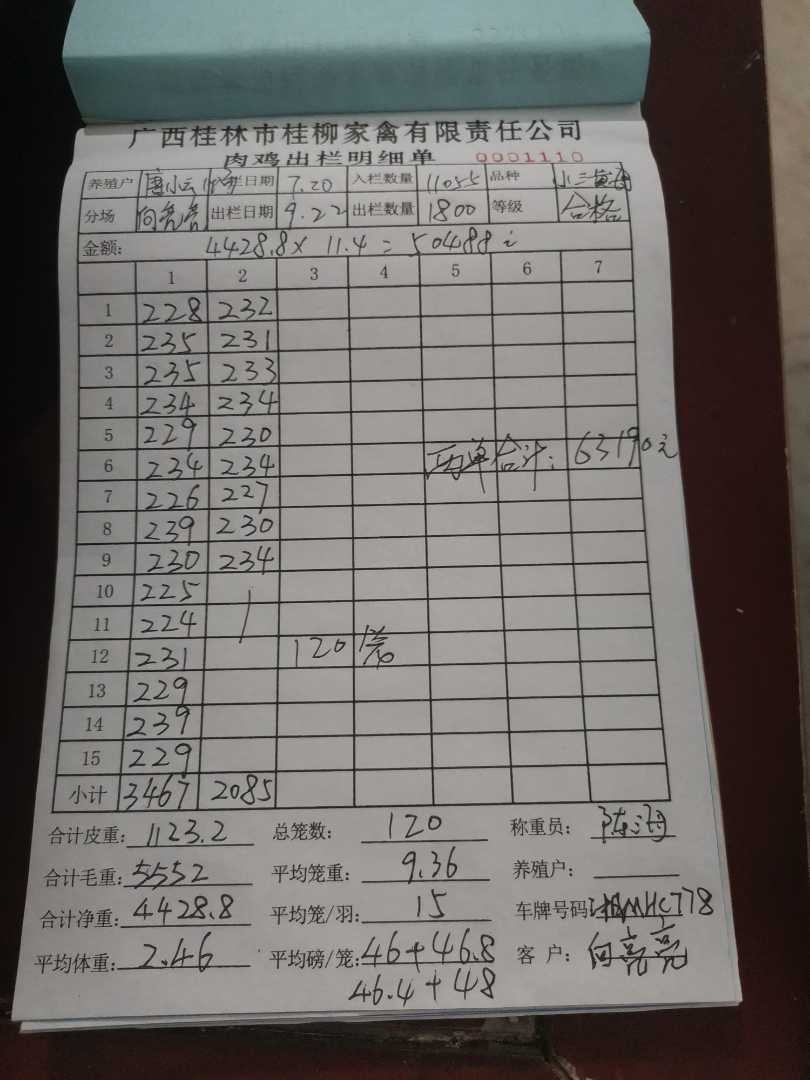 广西桂林市桂柳家禽有限责任公司
肉鸡出栏明细单 0001110
养殖户 唐小云 入栏日期 7.20 入栏数量 11055 品种
分场 向亮亮 出栏日期 9.22 出栏数量 1800 等级 合格
金额: 4428.8 × 11.4 = 50488元
1 2 3 4 5 6 7
1 228 232
2 235 231
3 235 233
4 234 234
5 229 230
6 234 234 两单合计: 63190元
7 226 227
8 239 230
9 230 234
10 225
11 224
12 231 120笼
13 229
14 239
15 229
小计 3467 2085
合计皮重: 1123.2 总笼数: 120 称重员: 陈海
合计毛重: 5552 平均笼重: 9.36 养殖户:
合计净重: 4428.8 平均笼/羽: 15 车牌号码: MHC778
平均体重: 2.46 平均磅/笼: 46+46.8 客户: 向亮亮
46.4+48